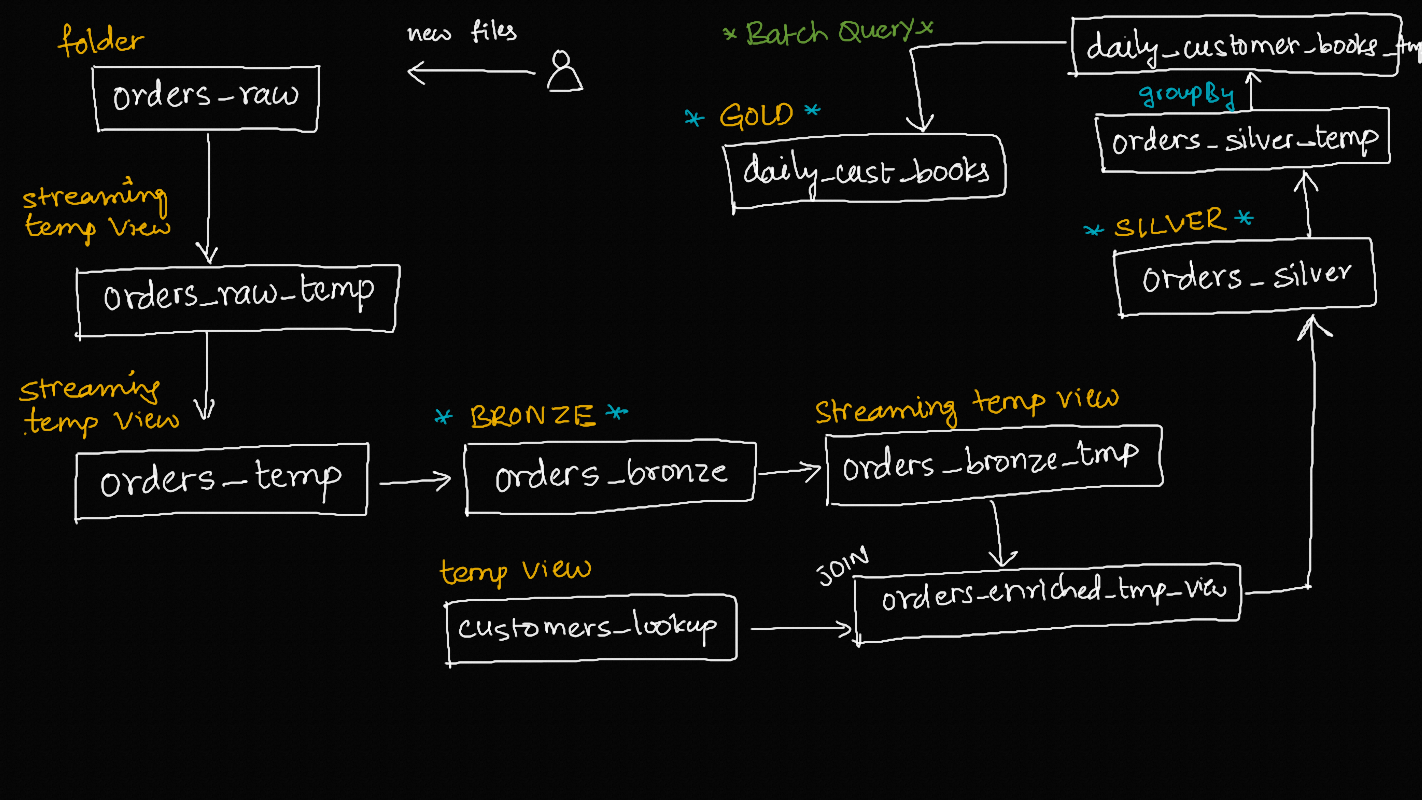 folder
orders_raw
new files
streaming
temp view
orders_raw_temp
streaming
temp view
orders_temp
* BRONZE *
orders_bronze
streaming temp view
orders_bronze_tmp
temp view
customers_lookup
JOIN
orders_enriched_tmp_view
* SILVER *
orders_silver
orders_silver_temp
groupBy
daily_customer_books_tmp
* Batch Query *
* GOLD *
daily_cust_books